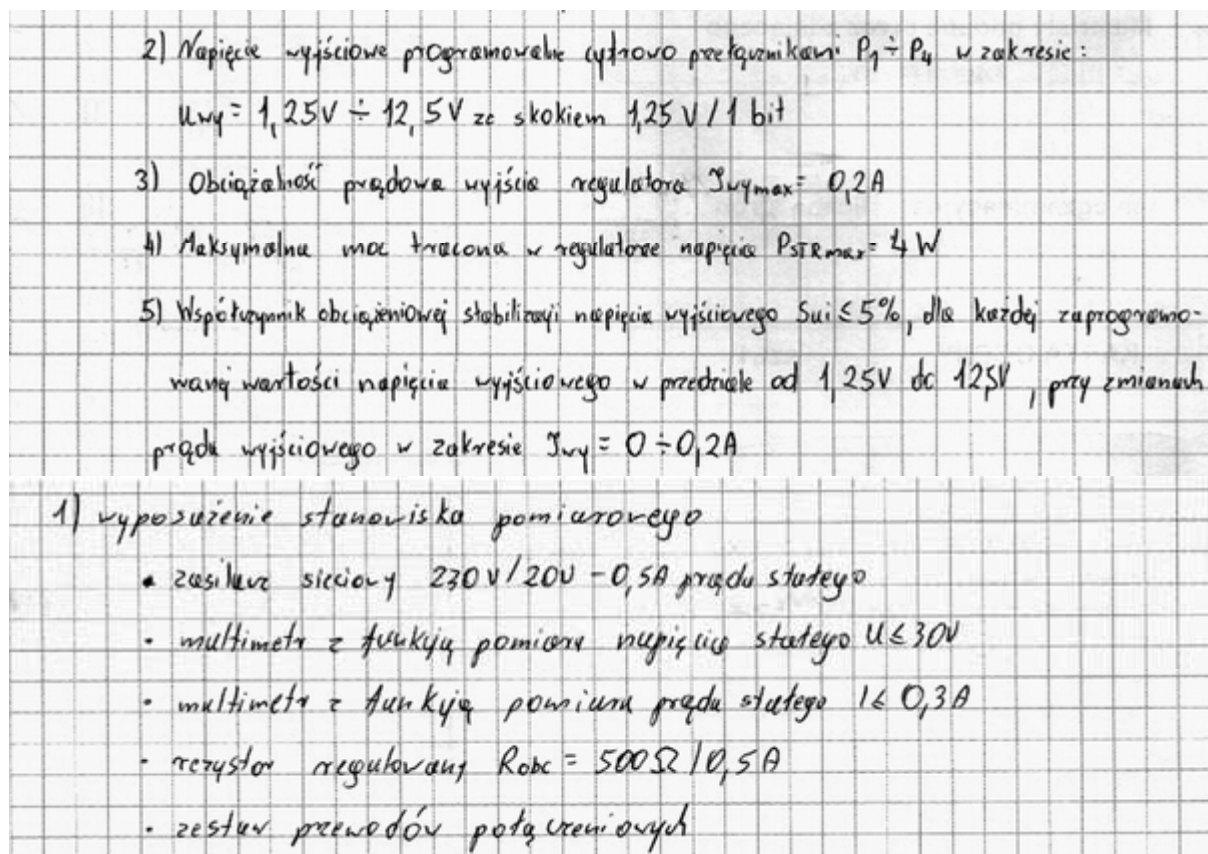 2) Napięcie wyjściowe programowalne cyfrowo przełącznikami P1 ÷ P4 w zakresie:
Uwy = 1,25V ÷ 12,5V ze skokiem 1,25 V / 1 bit
3) Obciążalność prądowa wyjścia regulatora Iwymax = 0,2A
4) Maksymalna moc tracona w regulatorze napięcia PSTRmax = 4 W
5) Współczynnik obciążeniowej stabilizacji napięcia wyjściowego Sui ≤ 5%, dla każdej zaprogramo-
wanej wartości napięcia wyjściowego w przedziale od 1,25V do 12,5V, przy zmianach
prądu wyjściowego w zakresie Iwy = 0 ÷ 0,2A
1) wyposażenie stanowiska pomiarowego
• zasilacz sieciowy 230 V/20V - 0,5A prądu stałego
• multimetr z funkcją pomiaru napięcia stałego U ≤ 30V
• multimetr z funkcją pomiaru prądu stałego I ≤ 0,3A
• rezystor regulowany Robc = 500Ω / 0,5A
• zestaw przewodów połączeniowych